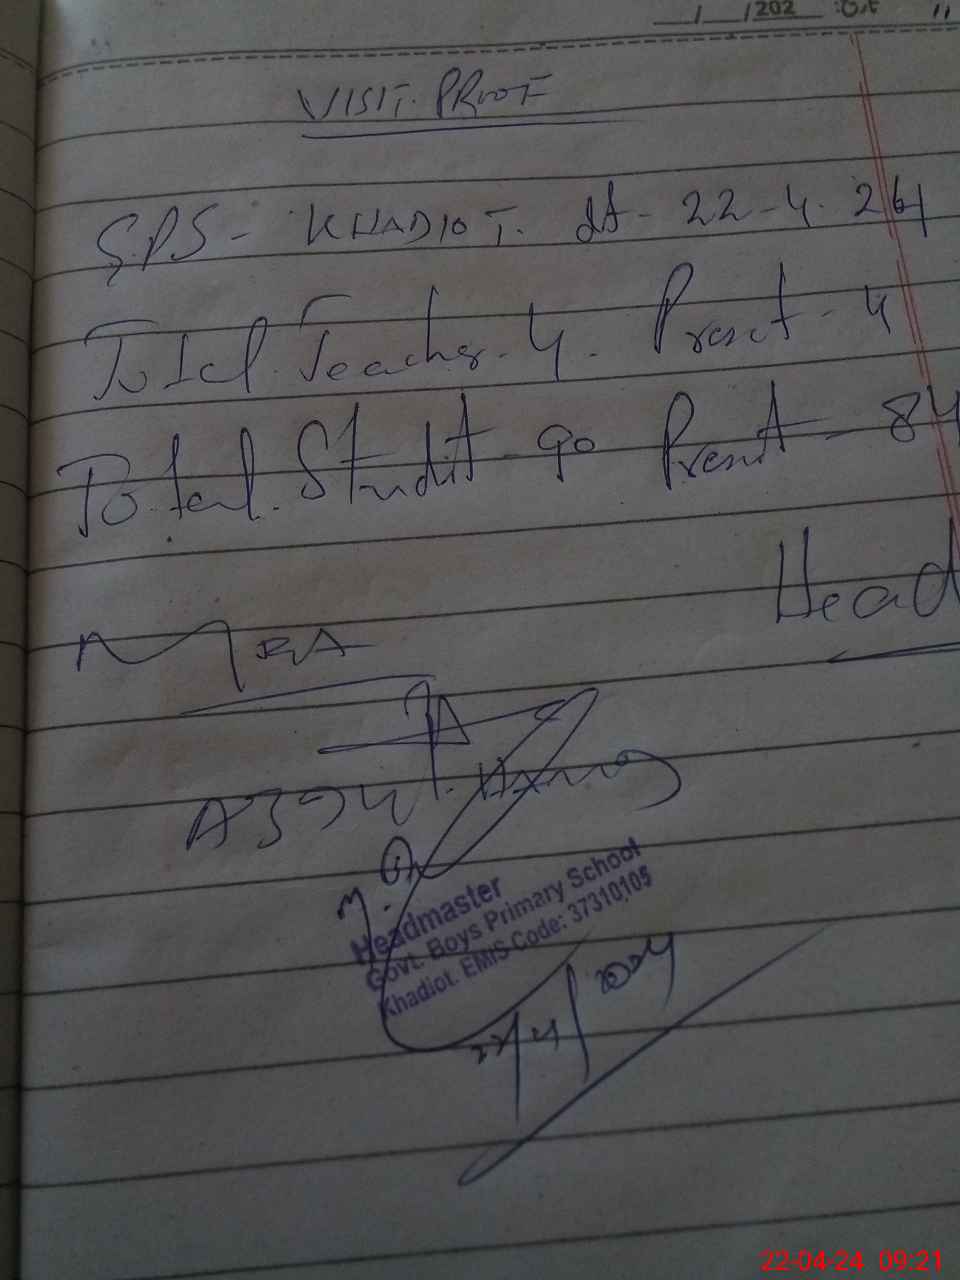 __/__/202__
VISIT. PROOF
GPS - KHADIOT. dt - 22-4.24
Total. Teacher. 4. Present - 4
Total. Student - 90 Present - 84
Head
MEA
Headmaster
Govt. Boys Primary School
Khadiot. EMIS Code: 37310105
22/4/2024
22-04-24 09:21